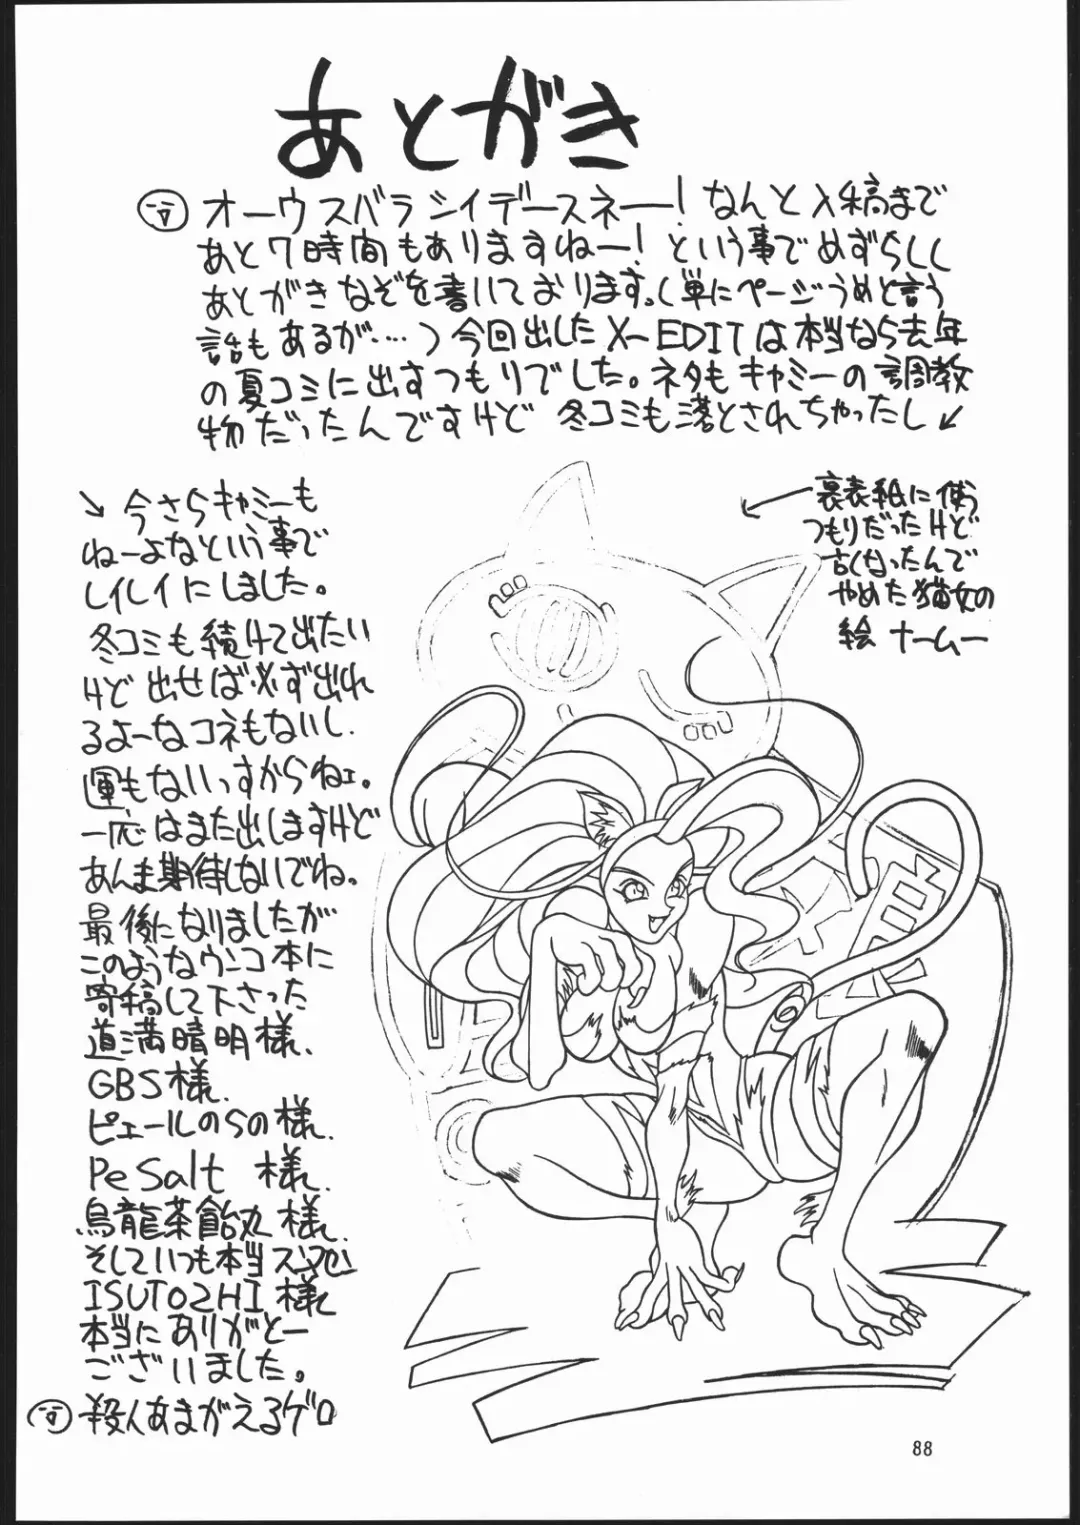 あとがき
オーウスバラシイデースネー!なんと入稿まで
あと7時間もありますねー!という事でめずらしく
あとがきなぞを書いております。(単にページうめと言う
話もあるが‥‥)今回出したX-EDITは本当なら去年
の夏コミに出すつもりでした。ネタもキャミーの調教
物だったんですけど 冬コミも落とされちゃったし↙
↘今さらキャミーも
ねーよなという事で
レイレイにしました。
冬コミも続けて出たい
けど出せば必ず出れ
るよーなコネもないし
運もないっすからねェ。
一応はまた出しますけど
あんま期待しないでね。
最後になりましたが
このようなウンコ本に
寄稿して下さった
道満晴明様、
GBS様、
ピェールのSの様、
Pe Salt 様、
烏龍茶飴丸様、
そしていつも本当スマぬ
ISUTOSHI様
本当にありがとー
ございました。
殺人あまがえるゲロ
裏表紙に使う
つもりだったけど
古くなったんで
やめた猫女の
絵 ナームー
88